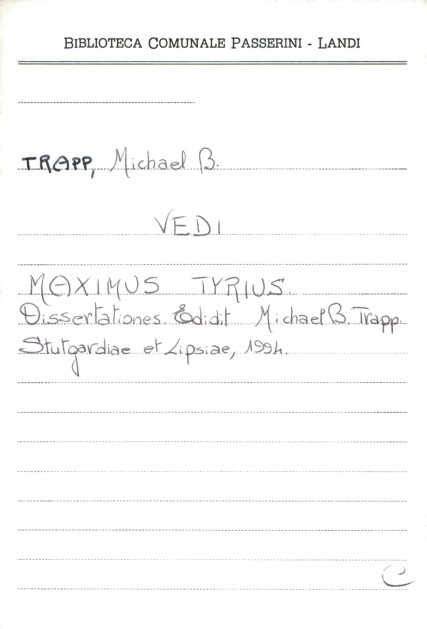 BIBLIOTECA COMUNALE PASSERINI - LANDI
TRAPP, Michael B.
VEDI
MAXIMUS TYRIUS.
Dissertationes. Edidit Michael B. Trapp.
Stutgardiae et Lipsiae, 1994.
C